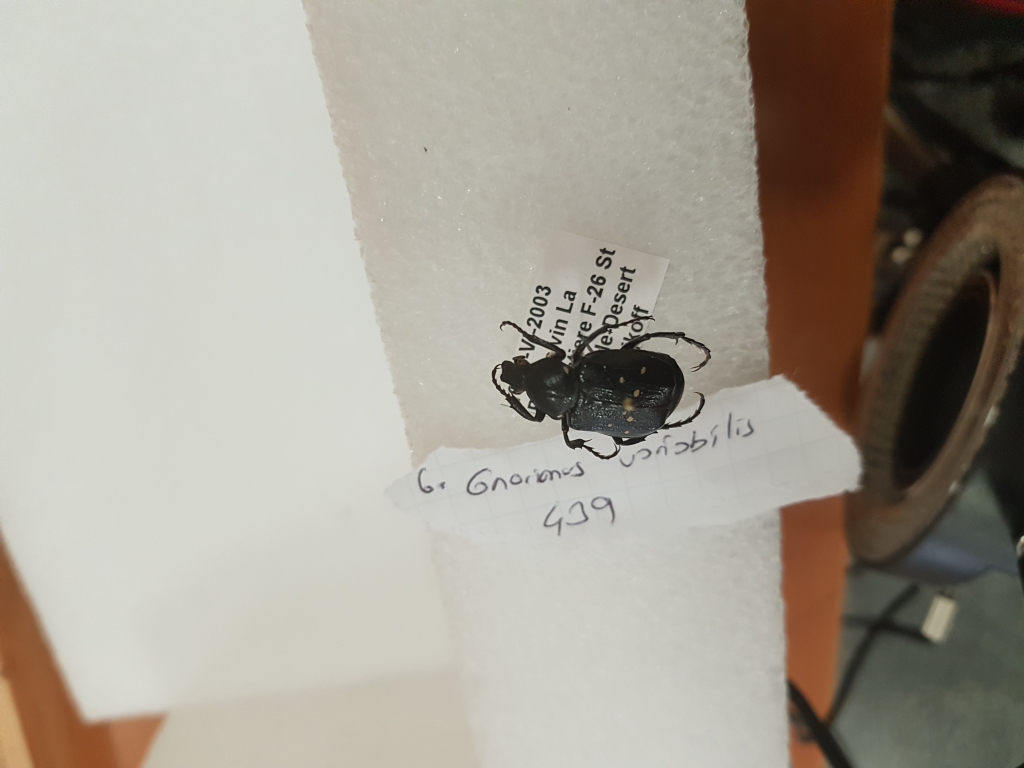 -2003
vin La
F-26 St
Desert
koff
6. Gnorimus variabilis
439